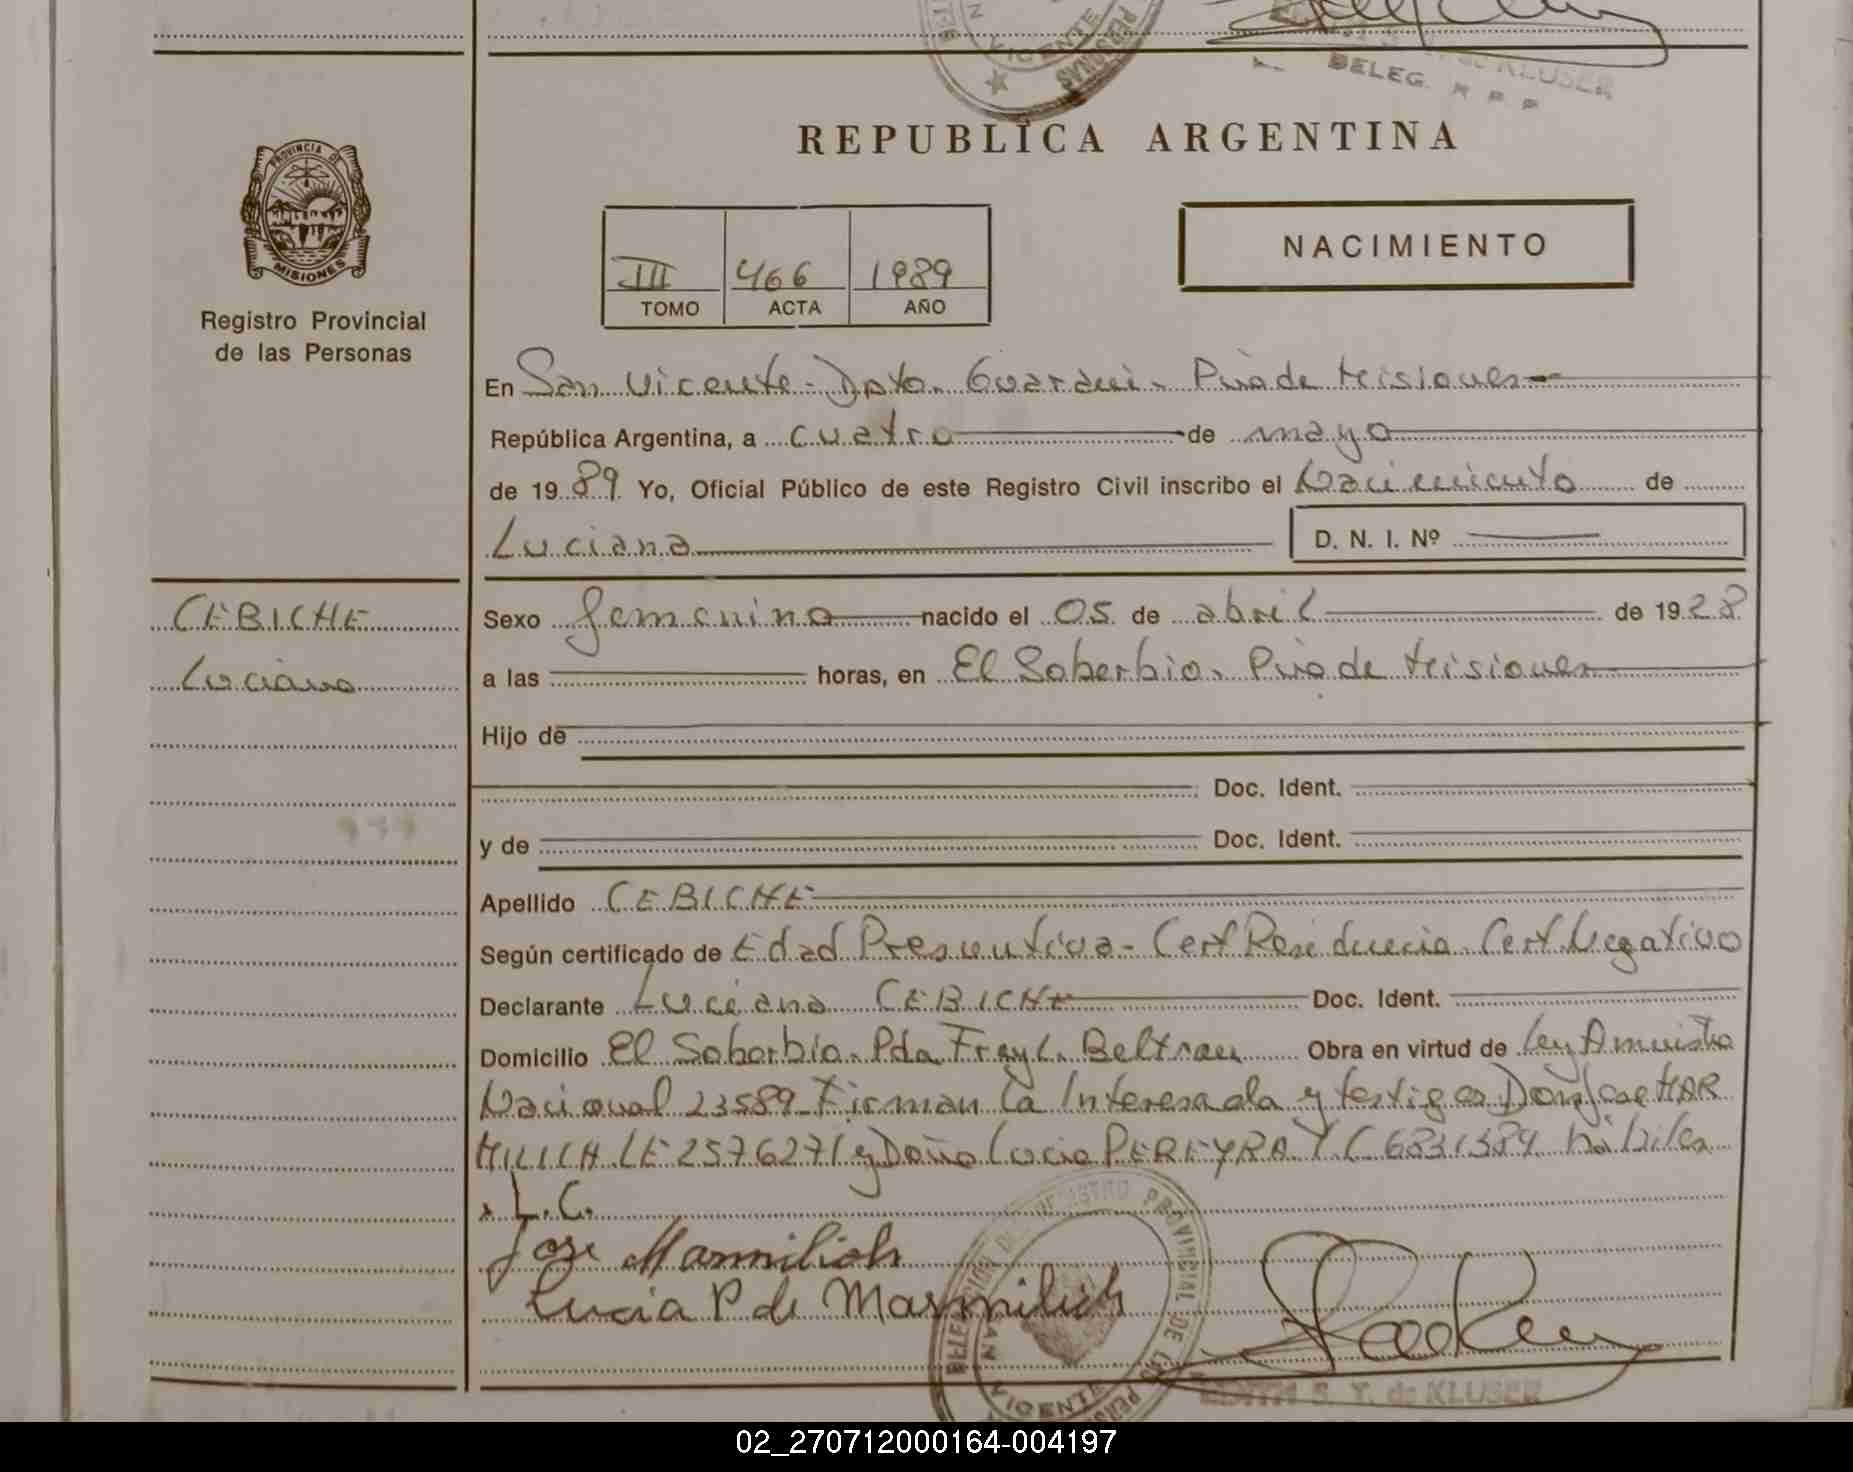 VICENTE
PERSONAS
de KLUSER
DELEG. R P P
PROVINCIA DE
MISIONES
Registro Provincial
de las Personas
REPUBLICA ARGENTINA
III 466 1989
TOMO ACTA AÑO
NACIMIENTO
En San Vicente - Dpto. Guaraní. Pvia de Misiones
República Argentina, a cuatro de mayo
de 1989 Yo, Oficial Público de este Registro Civil inscribo el Nacimiento de
Luciana D. N. I. Nº
CEBICHE
Luciana
Sexo femenino nacido el 05 de abril de 1928
a las horas, en El Soberbio. Pvia de Misiones
Hijo de
Doc. Ident.
y de Doc. Ident.
Apellido CEBICHE
Según certificado de Edad Presuntiva - Cert Residencia Cert Negativo
Declarante Luciana CEBICHE Doc. Ident.
Domicilio El Soberbio. Pda Fray L. Beltran Obra en virtud de Ley Amnistia
Nacional 23589 Firman la Interesada y testigos Don Jose MAR
MILICH LE 2576271 y Doña Lucia PEREYRA LC 6831389 hábiles
L.C.
Jose Marmilich
Lucia P de Marmilich
REGISTRO PROVINCIAL DE LAS PERSONAS
SAN VICENTE
EDITH S. T. de KLUSER
02_270712000164-004197